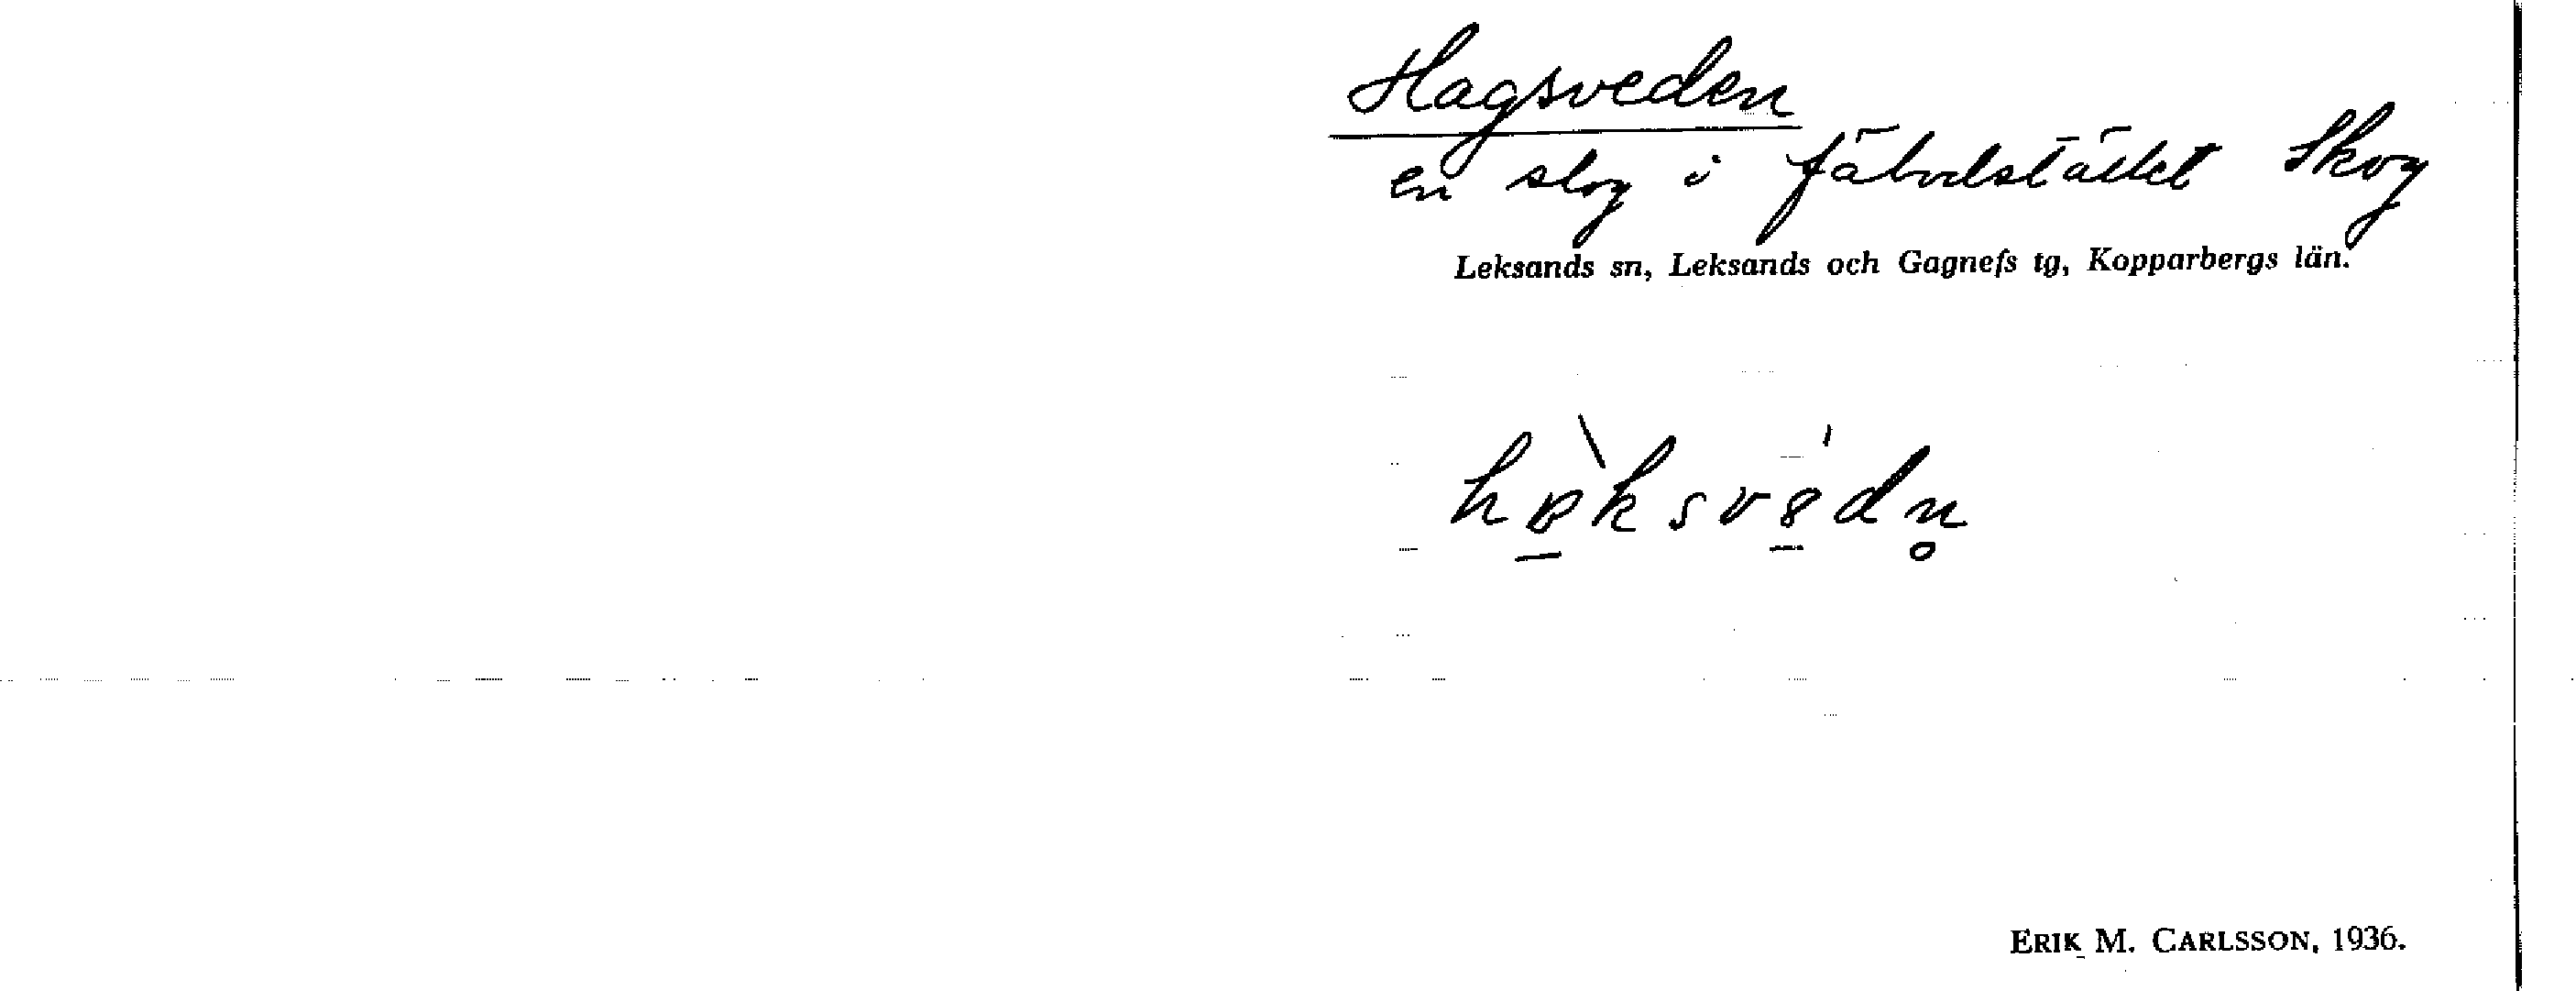 Hagsveden
en slog i fäbodstället Skog
Leksands sn, Leksands och Gagnefs tg, Kopparbergs län.
ERIK M. CARLSSON, 1936.